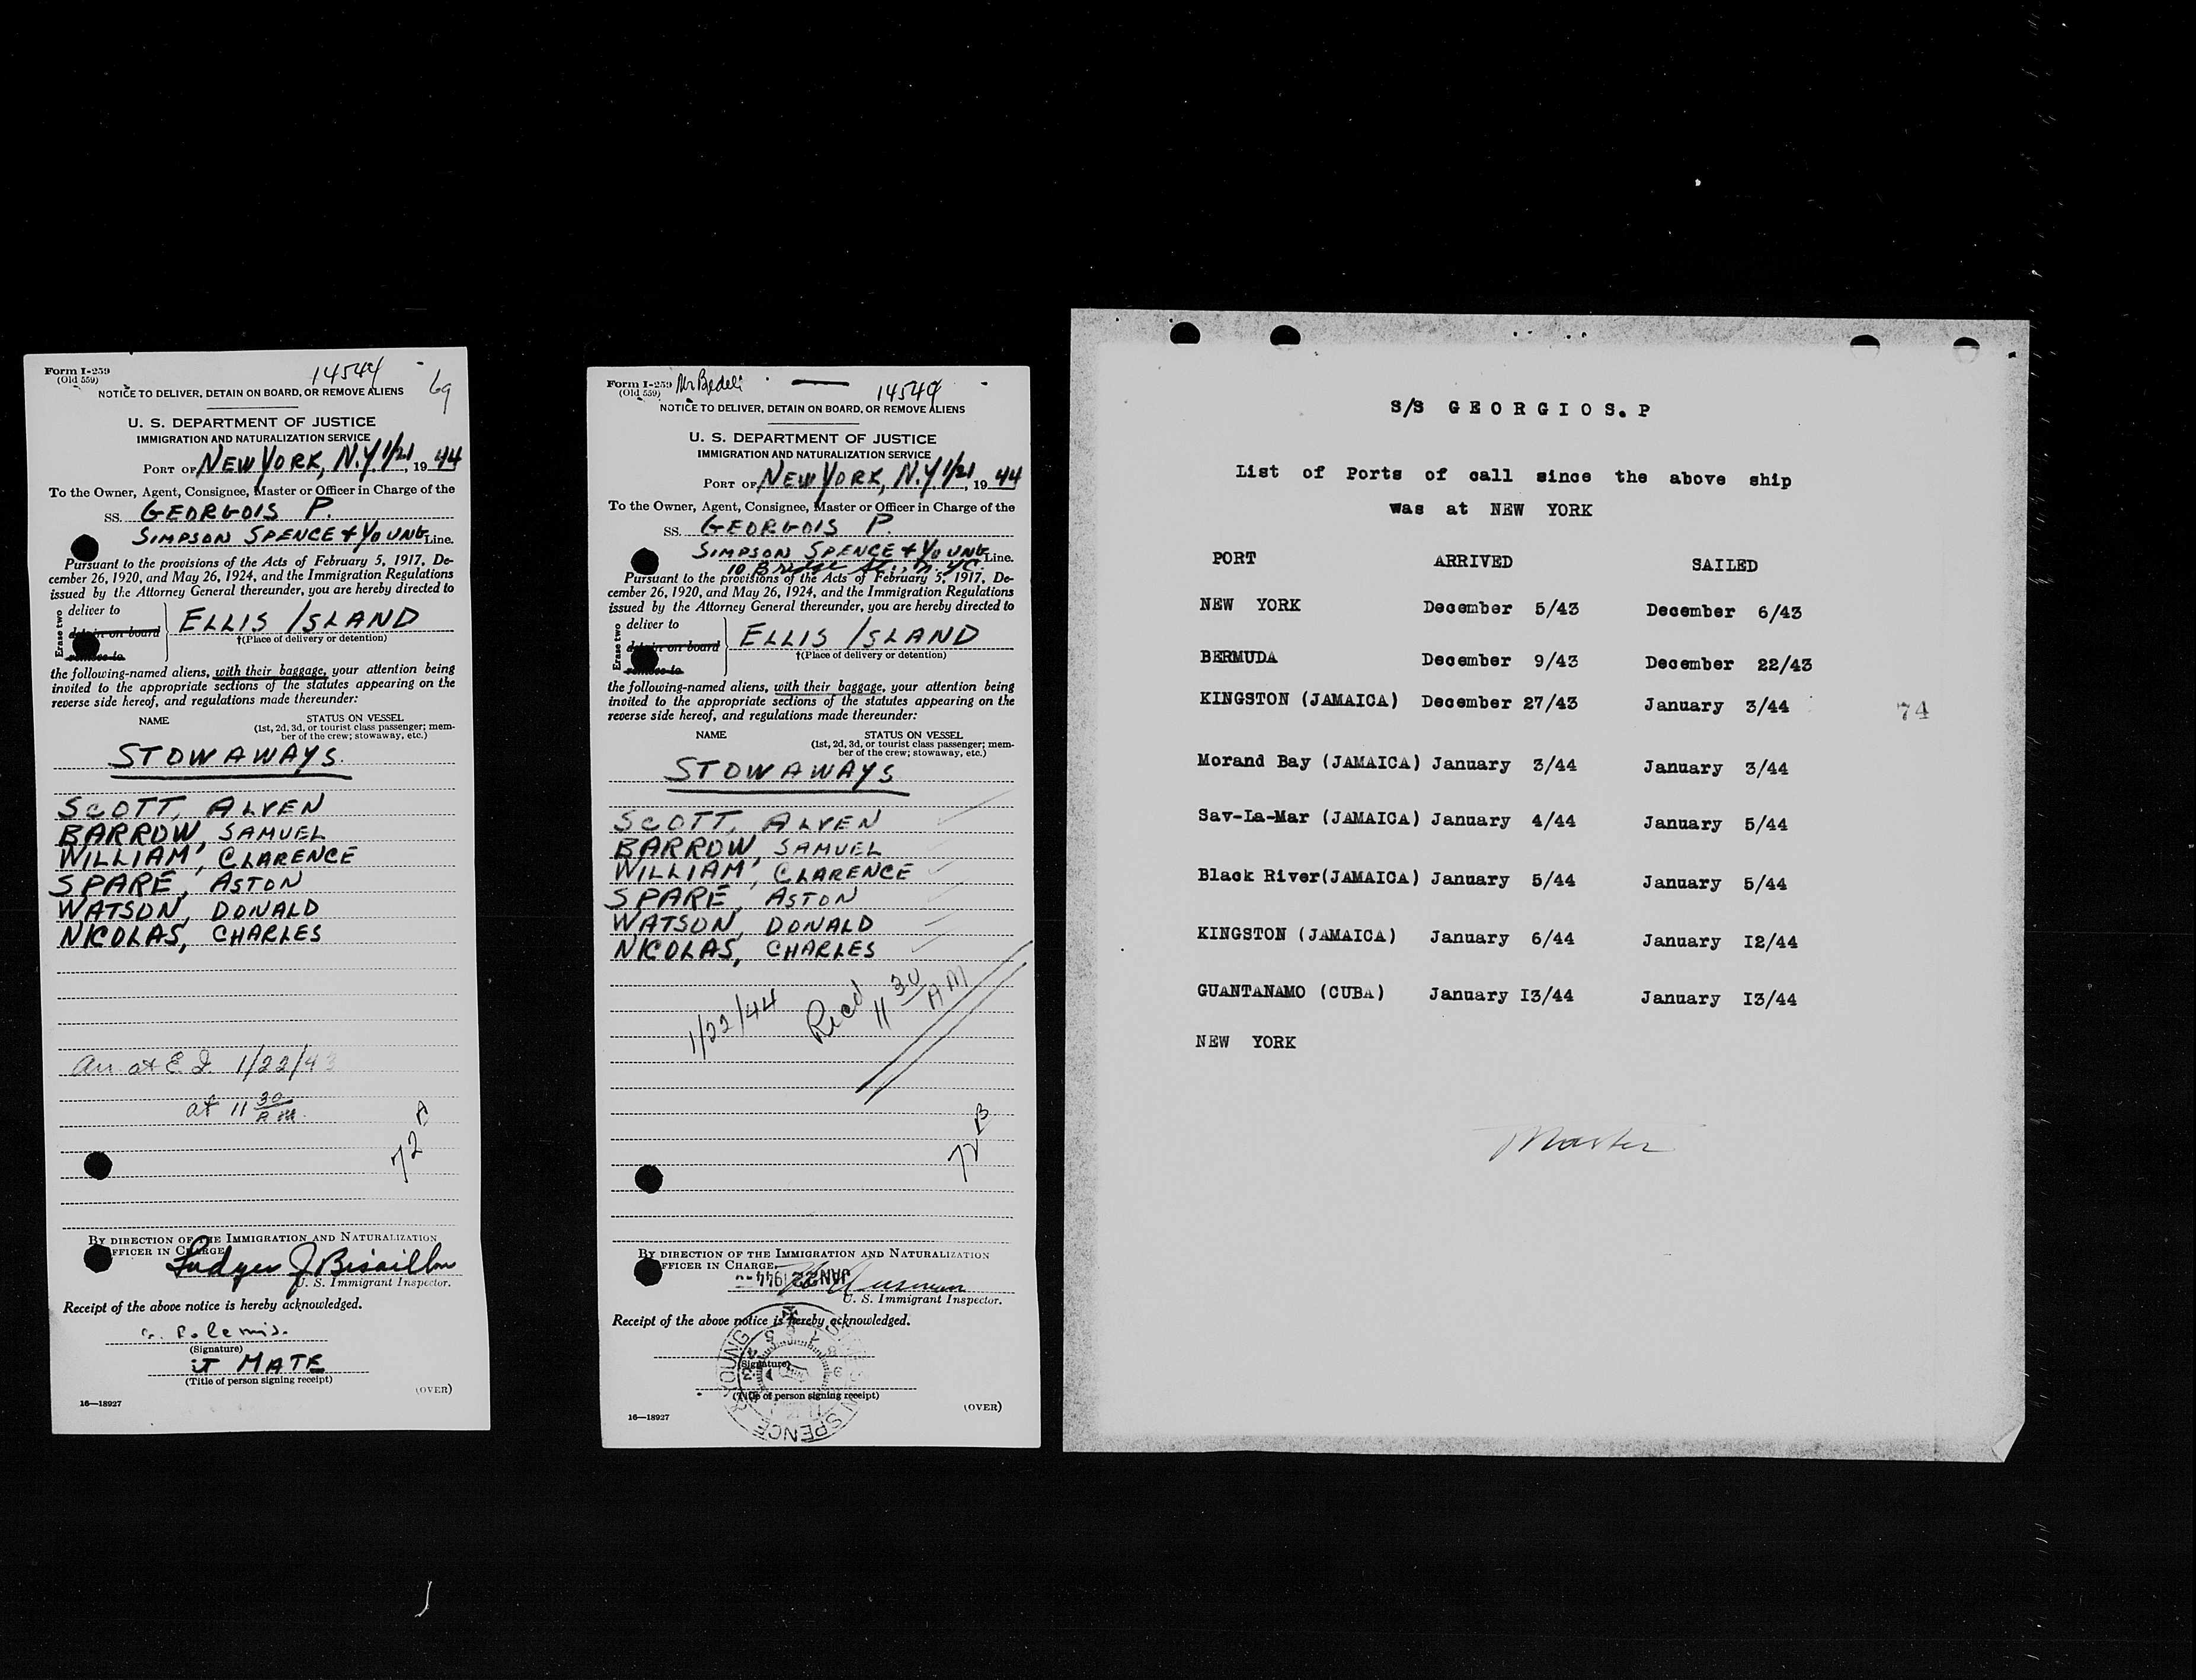 Form I-259
(Old 559)
14544
69
NOTICE TO DELIVER, DETAIN ON BOARD, OR REMOVE ALIENS
U. S. DEPARTMENT OF JUSTICE
IMMIGRATION AND NATURALIZATION SERVICE
PORT OF NEW YORK, N.Y. 1/21, 19 44
To the Owner, Agent, Consignee, Master or Officer in Charge of the
SS. GEORGOIS P.
SIMPSON SPENCE & YOUNG Line.
Pursuant to the provisions of the Acts of February 5, 1917, De-
cember 26, 1920, and May 26, 1924, and the Immigration Regulations
issued by the Attorney General thereunder, you are hereby directed to
Erase two
deliver to
detain on board
remove to
ELLIS ISLAND
†(Place of delivery or detention)
the following-named aliens, with their baggage, your attention being
invited to the appropriate sections of the statutes appearing on the
reverse side hereof, and regulations made thereunder:
NAME
STATUS ON VESSEL
(1st, 2d, 3d, or tourist class passenger; mem-
ber of the crew; stowaway, etc.)
STOWAWAYS.
SCOTT, ALVEN
BARROW, SAMUEL
WILLIAM', CLARENCE
SPARE, ASTON
WATSON, DONALD
NICOLAS, CHARLES
Arr. at E. I. 1/22/43
at 11 30 A.M.
72 A
BY DIRECTION OF THE IMMIGRATION AND NATURALIZATION
OFFICER IN CHARGE
Ludger J. Bisaillon
U. S. Immigrant Inspector.
Receipt of the above notice is hereby acknowledged.
Polemis.
(Signature)
MATE
(Title of person signing receipt)
(OVER)
16—18927
Form I-259
(Old 559)
Mr Bedeli
14544
NOTICE TO DELIVER, DETAIN ON BOARD, OR REMOVE ALIENS
U. S. DEPARTMENT OF JUSTICE
IMMIGRATION AND NATURALIZATION SERVICE
PORT OF NEW YORK, N.Y. 1/21, 19 44
To the Owner, Agent, Consignee, Master or Officer in Charge of the
SS. GEORGOIS P.
SIMPSON SPENCE & YOUNG Line.
10 Bridge St., N. Y. C.
Pursuant to the provisions of the Acts of February 5, 1917, De-
cember 26, 1920, and May 26, 1924, and the Immigration Regulations
issued by the Attorney General thereunder, you are hereby directed to
Erase two
deliver to
detain on board
remove to
ELLIS ISLAND
†(Place of delivery or detention)
the following-named aliens, with their baggage, your attention being
invited to the appropriate sections of the statutes appearing on the
reverse side hereof, and regulations made thereunder:
NAME
STATUS ON VESSEL
(1st, 2d, 3d, or tourist class passenger; mem-
ber of the crew; stowaway, etc.)
STOWAWAYS
SCOTT, ALVEN
BARROW, SAMUEL
WILLIAM', CLARENCE
SPARE, ASTON
WATSON, DONALD
NICOLAS, CHARLES
1/22/44 Recd 11 30 AM
72 B
BY DIRECTION OF THE IMMIGRATION AND NATURALIZATION
OFFICER IN CHARGE.
JAN 22 1944
U. S. Immigrant Inspector.
Receipt of the above notice is hereby acknowledged.
(Signature)
(Title of person signing receipt)
SPENCE & YOUNG
(OVER)
16—18927
S/S GEORGIOS. P
List of Ports of call since the above ship
was at NEW YORK
PORT ARRIVED SAILED
NEW YORK December 5/43 December 6/43
BERMUDA December 9/43 December 22/43
KINGSTON (JAMAICA) December 27/43 January 3/44
74
Morand Bay (JAMAICA) January 3/44 January 3/44
Sav-La-Mar (JAMAICA) January 4/44 January 5/44
Black River(JAMAICA) January 5/44 January 5/44
KINGSTON (JAMAICA) January 6/44 January I2/44
GUANTANAMO (CUBA) January I3/44 January I3/44
NEW YORK
Master